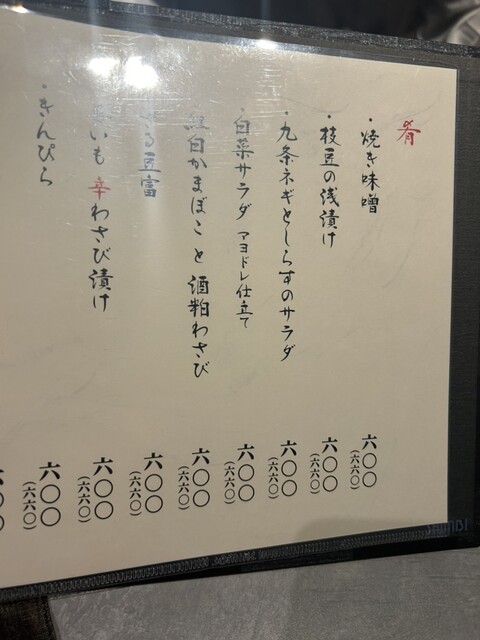 肴
・焼き味噌 六〇〇 (六六〇)
・枝豆の浅漬け 六〇〇 (六六〇)
・九条ネギとしらすのサラダ 六〇〇 (六六〇)
・白菜サラダ マヨドレ仕立て 六〇〇 (六六〇)
紅白かまぼこと酒粕わさび 六〇〇 (六六〇)
る豆富 六〇〇 (六六〇)
いも 辛わさび漬け 六〇〇 (六六〇)
・きんぴら 六〇〇 (六六〇)